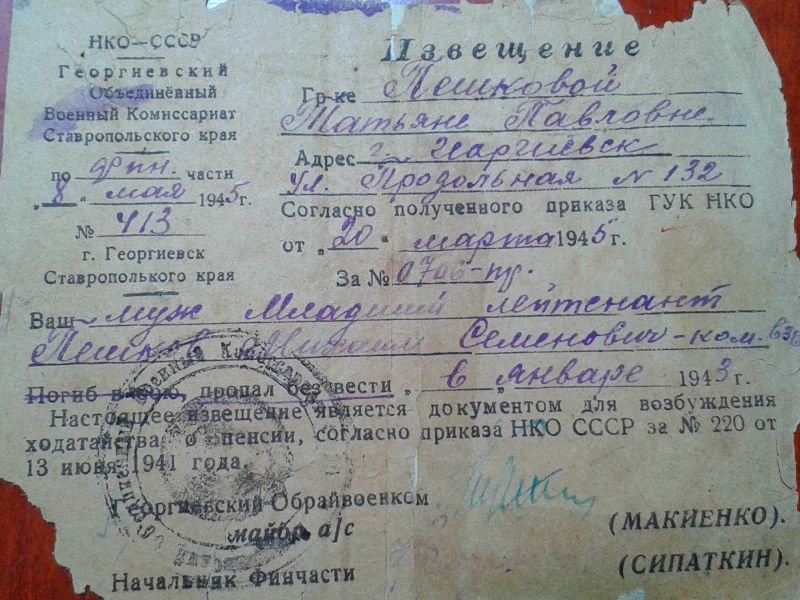 НКО—СССР
Георгиевский
Объединённый
Военный Комиссариат
Ставропольского края
по фин. части
„8“ мая 1945г.
№ 413
г. Георгиевск
Ставрополького края
Извещение
Гр-ке Пешковой
Татьяне Павловне
Адрес г.
ул. Продольная № 132
Согласно полученного приказа ГУК НКО
от „20“ марта 1945 г.
За №
Ваш муж Младший лейтенант
Пешков Михаил Семенович-ком.
Погиб в бою, пропал без вести „ в „ январе 1943 г.
Настоящее извещение является документом для возбуждения
ходатайства о пенсии, согласно приказа НКО СССР за № 220 от
13 июня 1941 года.
Георгиевский Обрайвоенком
майор а/с
(МАКИЕНКО).
Начальник Финчасти
(СИПАТКИН).